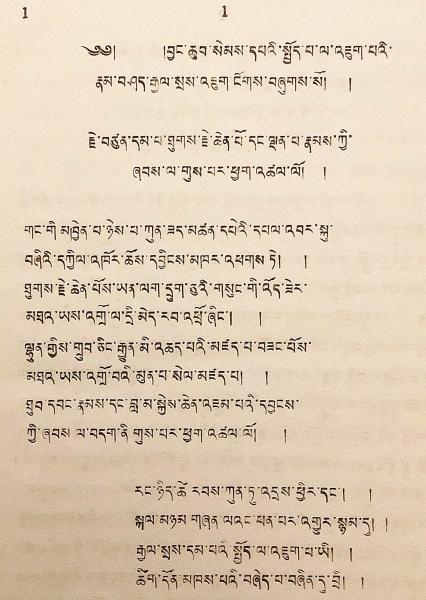 1 1
༄༅། །བྱང་ཆུབ་སེམས་དཔའི་སྤྱོད་པ་ལ་འཇུག་པའི་
རྣམ་བཤད་རྒྱལ་སྲས་འཇུག་ངོགས་བཞུགས་སོ། །
རྗེ་བཙུན་དམ་པ་ཐུགས་རྗེ་ཆེན་པོ་དང་ལྡན་པ་རྣམས་ཀྱི་
ཞབས་ལ་གུས་པར་ཕྱག་འཚལ་ལོ། །
གང་གི་མཁྱེན་པ་ཉེས་པ་ཀུན་ཟད་མཚན་དཔེའི་དཔལ་འབར་སྐུ
བཞིའི་དཀྱིལ་འཁོར་ཆོས་དབྱིངས་མཁར་འཕགས་ཏེ། །
ཐུགས་རྗེ་ཆེན་པོས་ཡན་ལག་དྲུག་ཅུའི་གསུང་གི་འོད་ཟེར་
མཐའ་ཡས་འགྲོ་ལ་དྲི་མེད་རབ་འཕྲོ་ཞིང་། །
ལྷུན་གྱིས་གྲུབ་ཅིང་རྒྱུན་མི་འཆད་པའི་མཛད་པ་བཟང་པོས་
མཐའ་ཡས་འགྲོ་བའི་མུན་པ་སེལ་མཛད་པ། །
ཐུབ་དབང་རྣམས་དང་བླ་མ་སྐྱེས་ཆེན་འཇམ་པའི་དབྱངས་
ཀྱི་ཞབས་ལ་བདག་ནི་གུས་པར་ཕྱག་འཚལ་ལོ། །
རང་ཉིད་ཚེ་རབས་ཀུན་ཏུ་འདྲས་ཕྱིར་དང་། །
སྐལ་མཉམ་གཞན་ལའང་ཕན་པར་འགྱུར་སྙམ་དུ། །
རྒྱལ་སྲས་དམ་པའི་སྤྱོད་ལ་འཇུག་པ་ཡི། །
ཚིག་དོན་མཁས་པའི་བཞེད་པ་བཞིན་དུ་བྲི། །